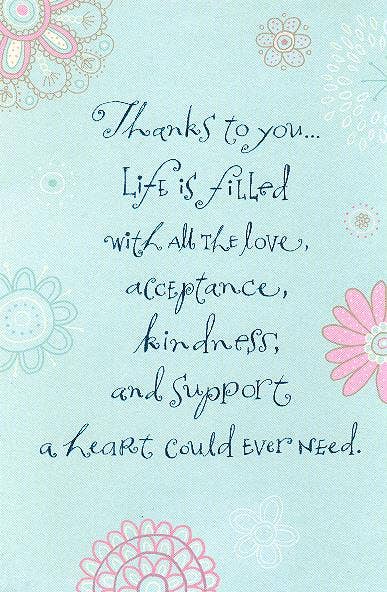 Thanks to you...
Life is filled
with all the love,
acceptance,
kindness,
and support
a heart could ever need.